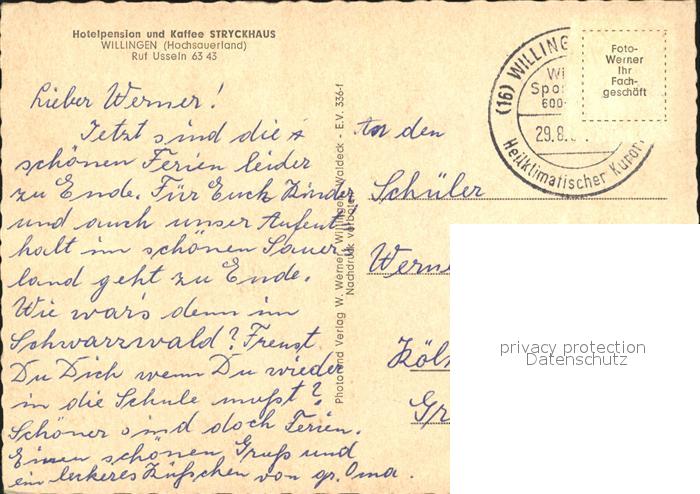 Hotelpension und Kaffee STRYCKHAUS
WILLINGEN (Hochsauerland)
Ruf Usseln 63 43
Lieber Werner!
Jetzt sind die
schönen Ferien leider
zu Ende. Für Euch Kinder
und auch unser Aufent
halt im schönen Sauer
land geht zu Ende.
Wie war's denn im
Schwarzwald? Freust
Du Dich wenn Du wieder
in die Schule mußt?
Schöner sind doch Ferien.
Einen schönen Gruß und
ein leckeres Küßchen von gr. Oma.
Photo und Verlag W. Werner, Willingen/Waldeck - E.V. 336-f
Nachdruck verboten
(16) WILLING
Wi
Spo
600-
29.8.
Heilklimatischer Kurort
Foto-
Werner
Ihr
Fach-
geschäft
An den
Schüler
Werne
Köln
Gr
privacy protection
Datenschutz